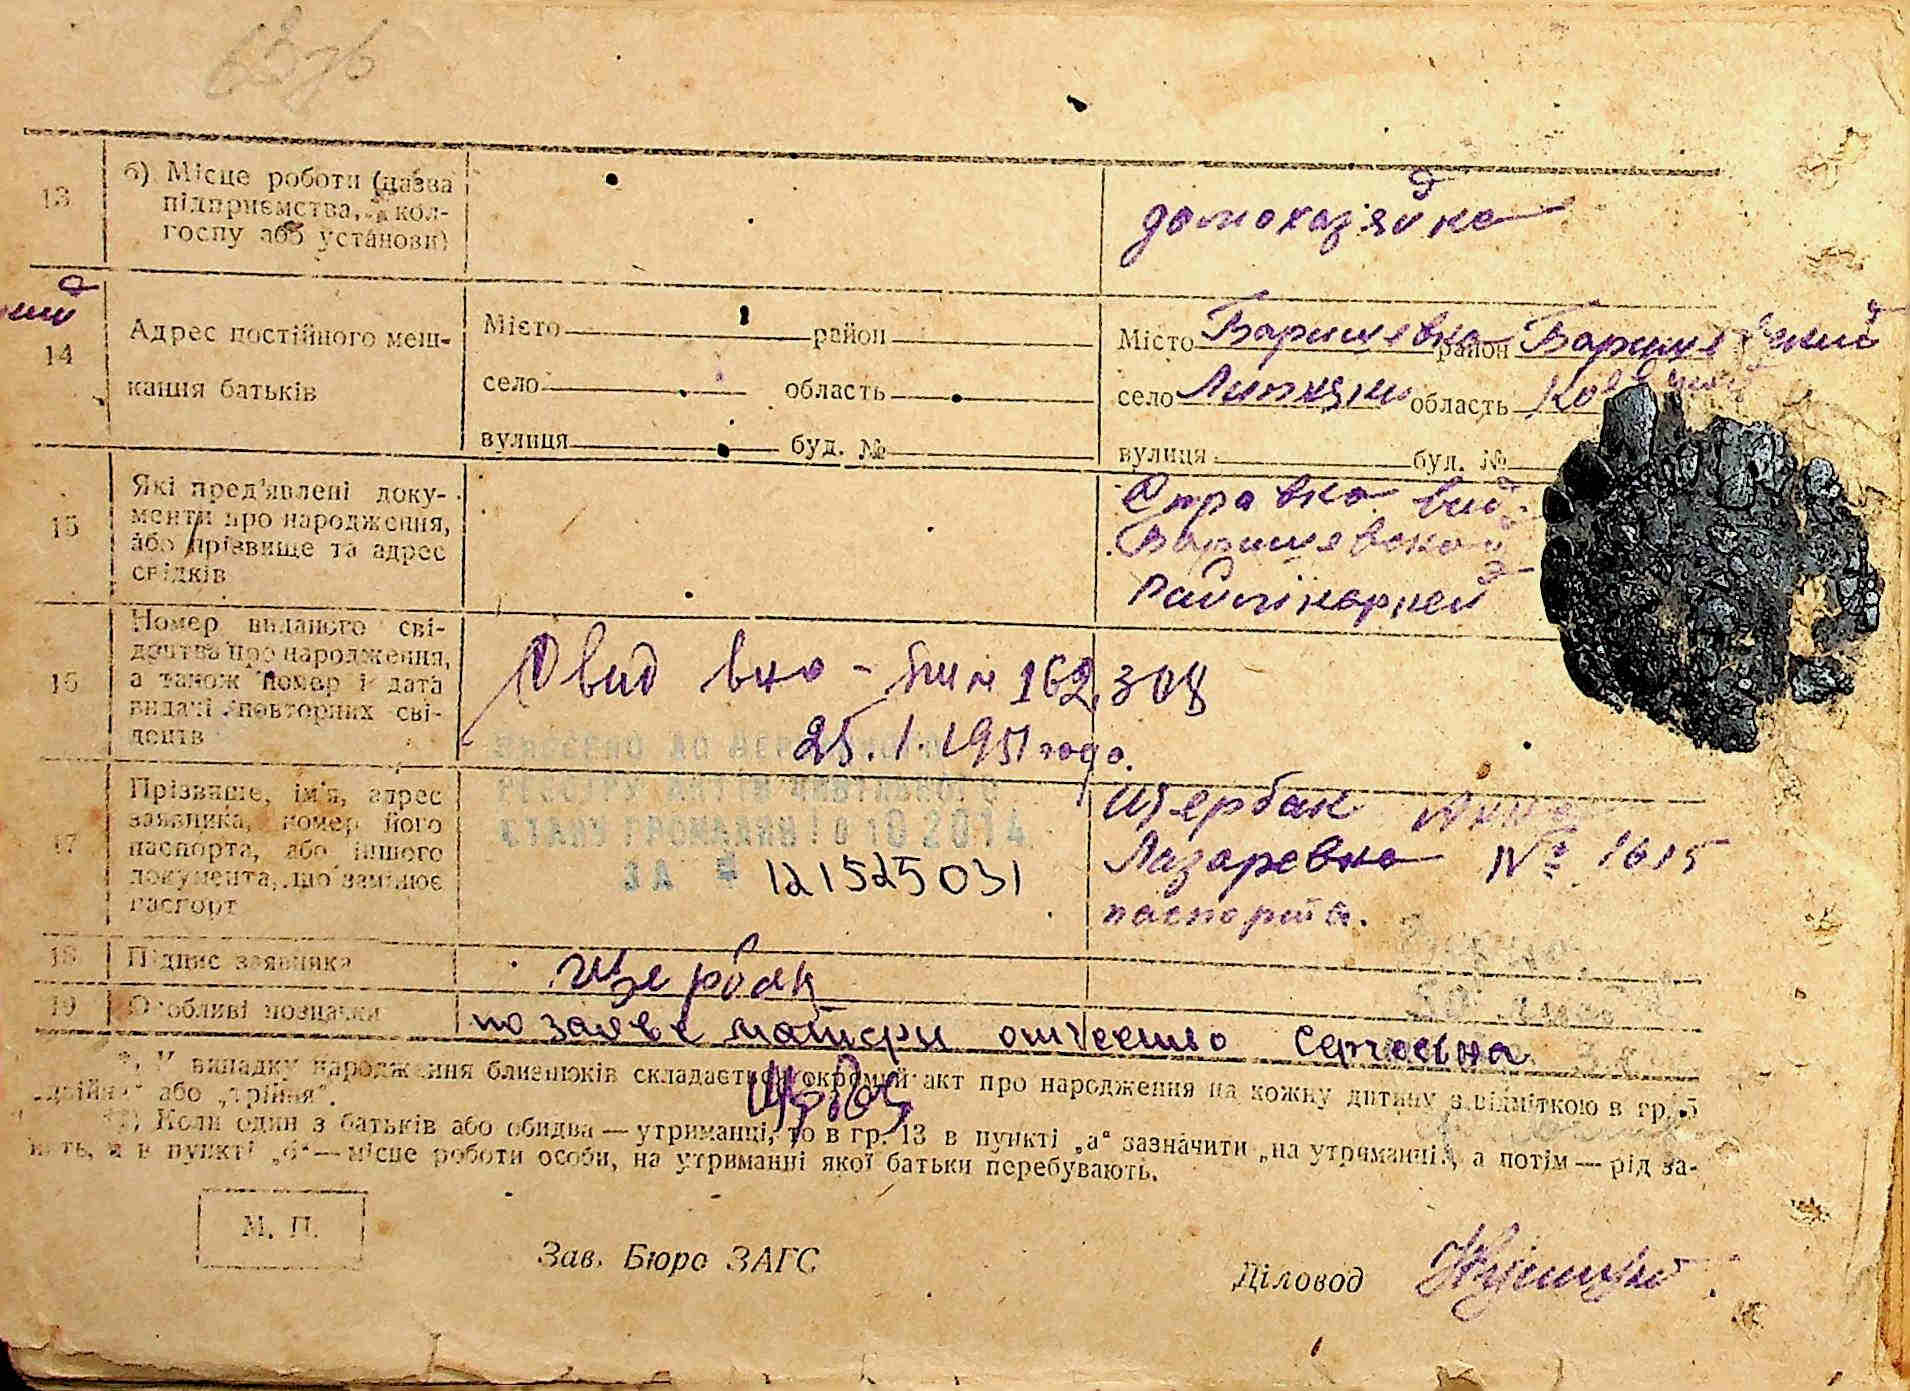 13
б) Місце роботи (назва
підприємства, кол-
госпу або установи)
домохазяйка
14
Адрес постійного меш-
кання батьків
Місто район
село область
вулиця буд. №
Місто Баришевка район Баришевский
село Липняки область
вулиця буд. №
15
Які пред'явлені доку-
менти про народження,
або прізвище та адрес
свідків
Справка вид
Баришевской
16
Номер виданого сві-
доцтва про народження,
а також номер і дата
видачі повторних сві-
доцтв
162308
25.1.1951 года.
ВНЕСЕНО ДО ДЕРЖАВНОГО
РЕЄСТРУ АКТІВ ЦИВІЛЬНОГО
СТАНУ ГРОМАДЯН 10 10 2014
ЗА # 121525031
17
Прізвище, ім'я, адрес
заявника, номер його
паспорта, або іншого
документа, що замінює
паспорт
Щербак Анна
Лазаревна № 1615
паспорта.
18
Підпис заявника
Щербак
19
Особливі позначки
по заяве матери отчество Сергеевна
*) У випадку народження близнюків складається окремий акт про народження на кожну дитину з відміткою в гр. 5
„двійня" або „трійня".
**) Коли один з батьків або обидва — утриманці, то в гр. 13 в пункті „а" зазначити „на утриманні", а потім — рід за-
нять, а в пункті „б" — місце роботи особи, на утриманні якої батьки перебувають.
М. П.
Зав. Бюро ЗАГС
Діловод